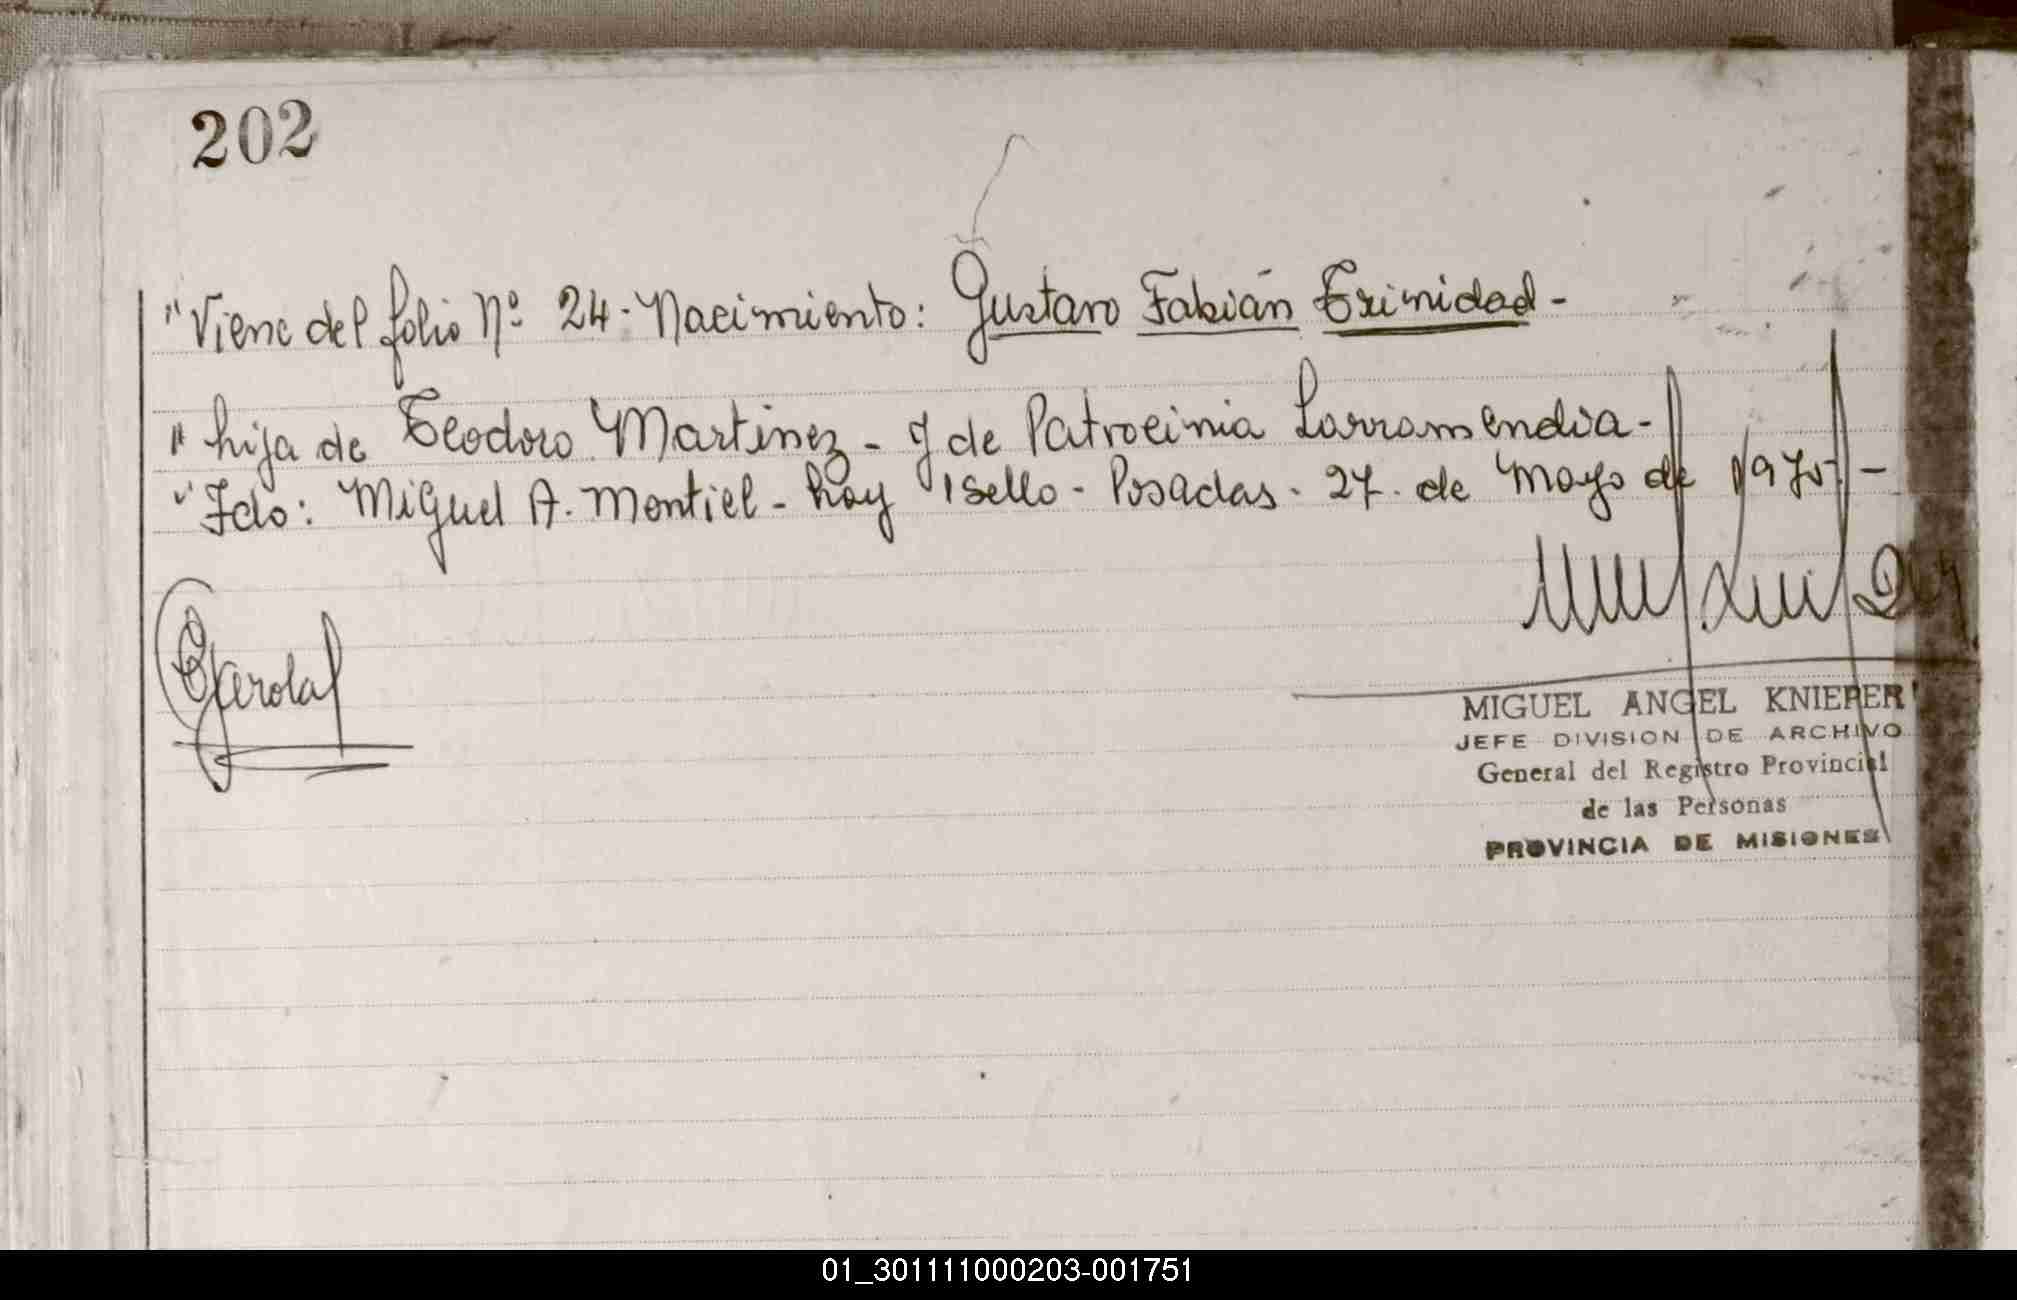 202
"Viene del folio Nº 24 - Nacimiento: Gustavo Fabián Trinidad -
" hija de Teodoro Martinez - y de Patrocinia Larramendia -
" Fdo: Miguel A. Montiel - hay 1 sello - Posadas - 27 - de Mayo de 1975 -
MIGUEL ANGEL KNIEPER
JEFE DIVISION DE ARCHIVO
General del Registro Provincial
de las Personas
PROVINCIA DE MISIONES
01_301111000203-001751